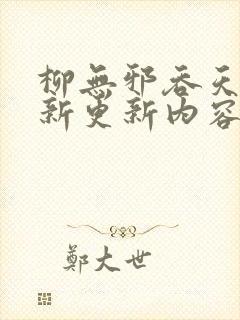 柳無邪吞天
新更新內容
鄭大世